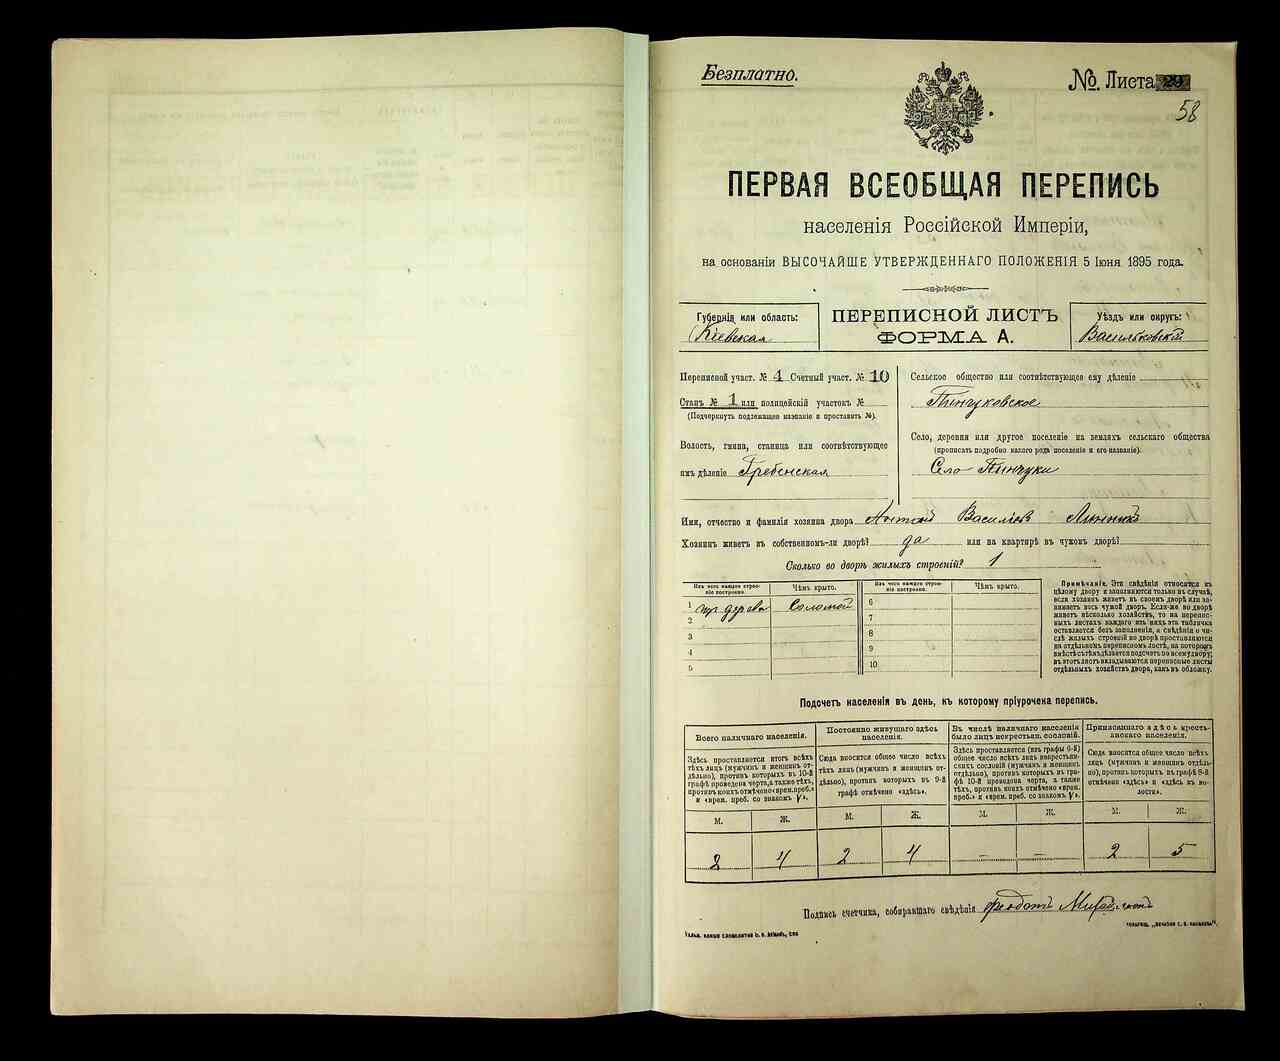 Безплатно.
№. Листа 29
58
ПЕРВАЯ ВСЕОБЩАЯ ПЕРЕПИСЬ
населенія Россійской Имперіи,
на основаніи ВЫСОЧАЙШЕ УТВЕРЖДЕННАГО ПОЛОЖЕНІЯ 5 Іюня 1895 года.
Губернія или область:
Кіевская
ПЕРЕПИСНОЙ ЛИСТЪ
ФОРМА А.
Уѣздъ или округъ:
Васильковскій
Переписной участ. № 4 Счетный участ. № 10
Станъ № 1 или полицейскій участокъ №
(Подчеркнуть подлежащее названіе и проставить №).
Волость, гмина, станица или соотвѣтствующее
имъ дѣленіе Гребенская
Сельское общество или соотвѣтствующее ему дѣленіе
Пинчуковское
Село, деревня или другое поселеніе на земляхъ сельскаго общества
(прописать подробно какого рода поселеніе и его названіе).
Село Пинчуки
Имя, отчество и фамилія хозяина двора Антоній Василіев Линникъ
Хозяинъ живетъ въ собственномъ-ли дворѣ? да или на квартирѣ въ чужомъ дворѣ?
Сколько во дворѣ жилыхъ строеній? 1
Изъ чего каждое строе-
ніе построено.
Чѣмъ крыто.
Изъ чего каждое строе-
ніе построено.
Чѣмъ крыто.
1 изъ дерева Соломой 6
2 7
3 8
4 9
5 10
Примѣчаніе. Эти свѣдѣнія относятся къ
цѣлому двору и заполняются только въ случаѣ,
если хозяинъ живетъ въ своемъ дворѣ или за-
нимаетъ весь чужой дворъ. Если-же во дворѣ
живетъ нѣсколько хозяйствъ, то на перепис-
ныхъ листахъ каждаго изъ нихъ эта табличка
оставляется безъ заполненія, а свѣдѣнія о чи-
слѣ жилыхъ строеній во дворѣ проставляются
на отдѣльномъ переписномъ листѣ, на которомъ
вмѣстѣ съ тѣмъ дѣлается подсчетъ по всему двору;
въ этотъ листъ вкладываются переписные листы
отдѣльныхъ хозяйствъ двора, какъ въ обложку.
Подсчетъ населенія въ день, къ которому пріурочена перепись.
Всего наличнаго населенія.
Здѣсь проставляется итогъ всѣхъ
тѣхъ лицъ (мужчинъ и женщинъ от-
дѣльно), противъ которыхъ въ 10-й
графѣ проведена черта, а также тѣхъ,
противъ коихъ отмѣчено «врем. преб.»
и «врем. преб. со знакомъ V».
Постоянно живущаго здѣсь
населенія.
Сюда вносится общее число всѣхъ
тѣхъ лицъ (мужчинъ и женщинъ от-
дѣльно), противъ которыхъ въ 9-й
графѣ отмѣчено «здѣсь».
Въ числѣ наличнаго населенія
было лицъ некрестьян. сословій.
Здѣсь проставляется (изъ графы 6-й)
общее число всѣхъ лицъ некрестьян-
скихъ сословій (мужчинъ и женщинъ
отдѣльно), противъ которыхъ въ гра-
фѣ 10-й проведена черта, а также
тѣхъ, противъ коихъ отмѣчено «врем.
преб.» и «врем. преб. со знакомъ V».
Приписаннаго здѣсь кресть-
янскаго населенія.
Сюда вносится общее число всѣхъ
лицъ (мужчинъ и женщинъ отдѣль-
но), противъ которыхъ въ графѣ 8-й
отмѣчено «здѣсь» и «здѣсь въ во-
лости».
М. Ж. М. Ж. М. Ж. М. Ж.
2 4 2 4 – – 2 5
Подпись счетчика, собиравшаго свѣдѣнія Феодотъ